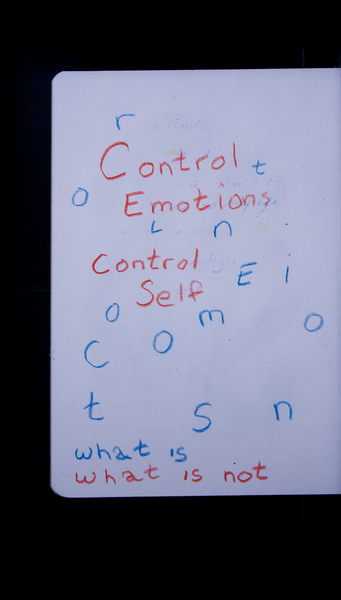 r
Control t
o Emotions
L n
Control
E i
Self
o m o
C o
t s n
what is
what is not